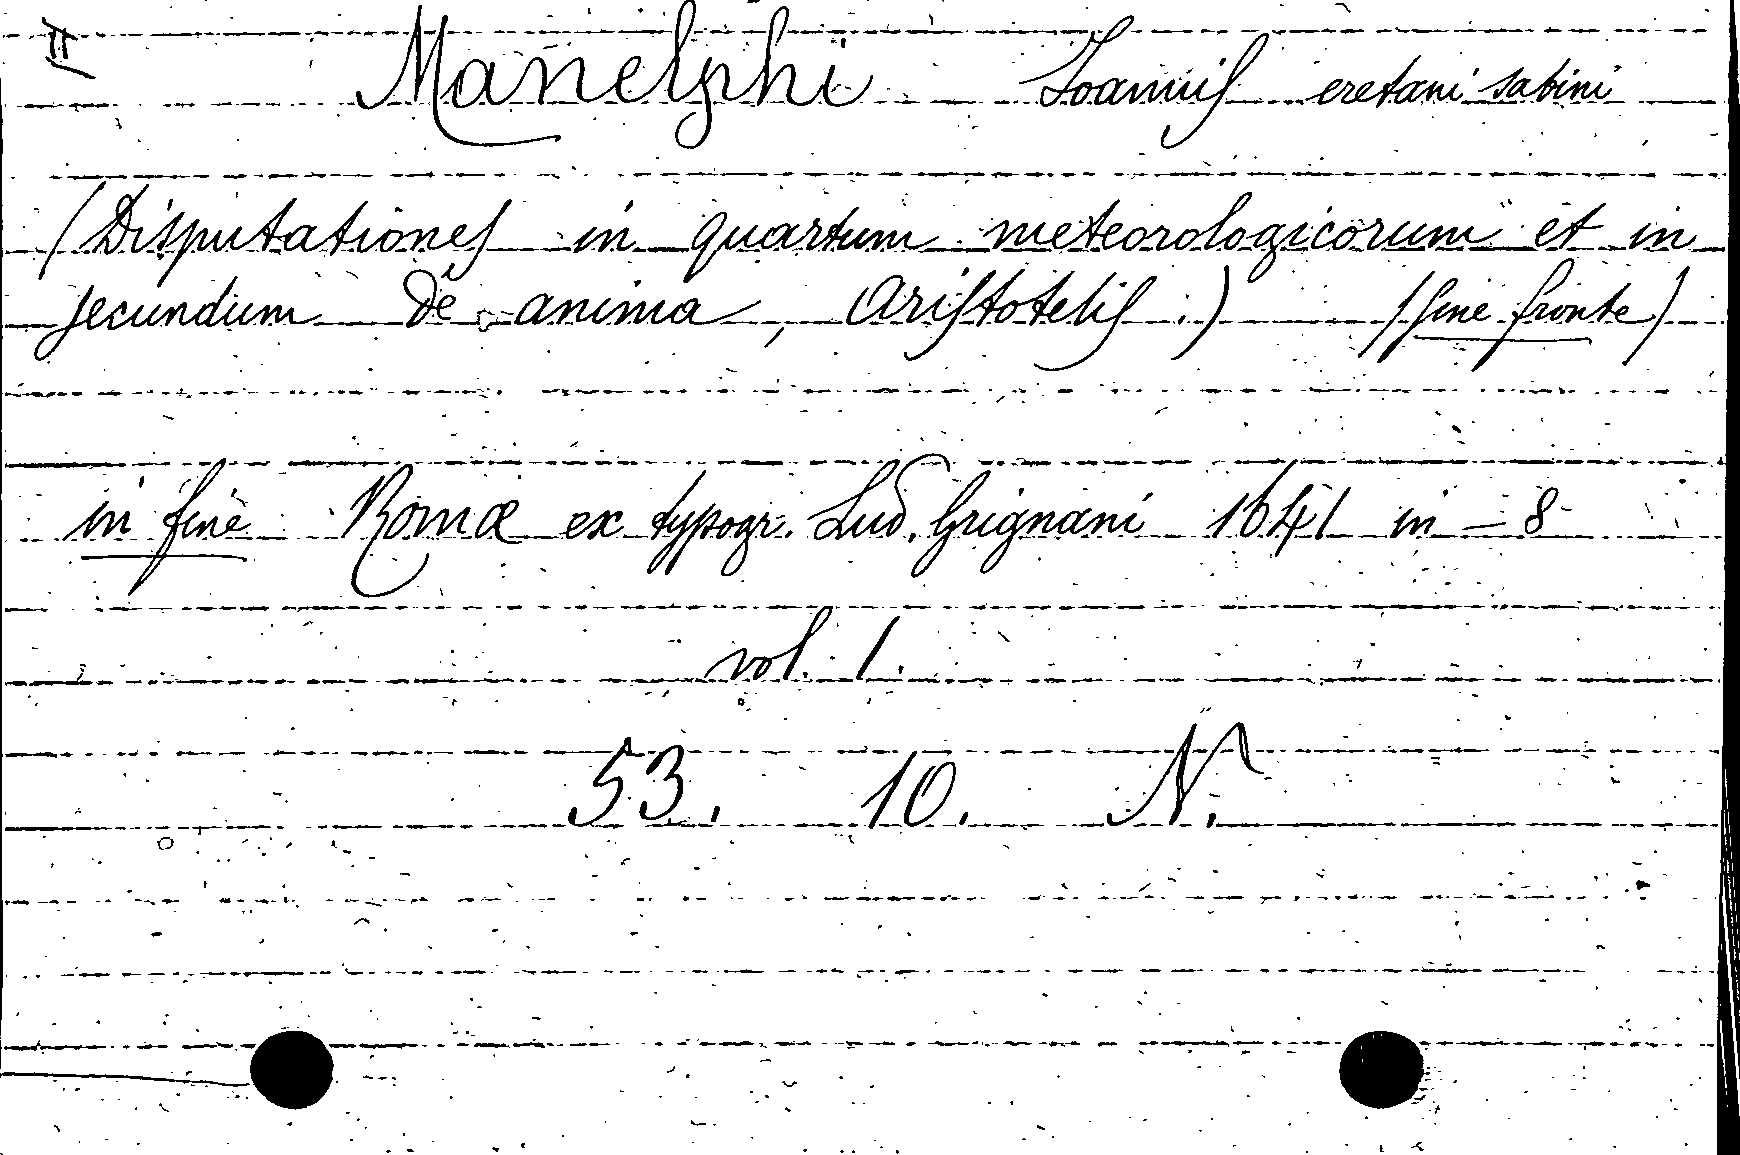 II
Manelphi Joannis eretani sabini
(Disputationes in quartum meteorologicorum et in
secundum de anima, Aristotelis.) (sine fronte)
in fine Romæ ex typogr. Lud. Grignani 1641 in - 8
vol. 1.
53. 10. N.